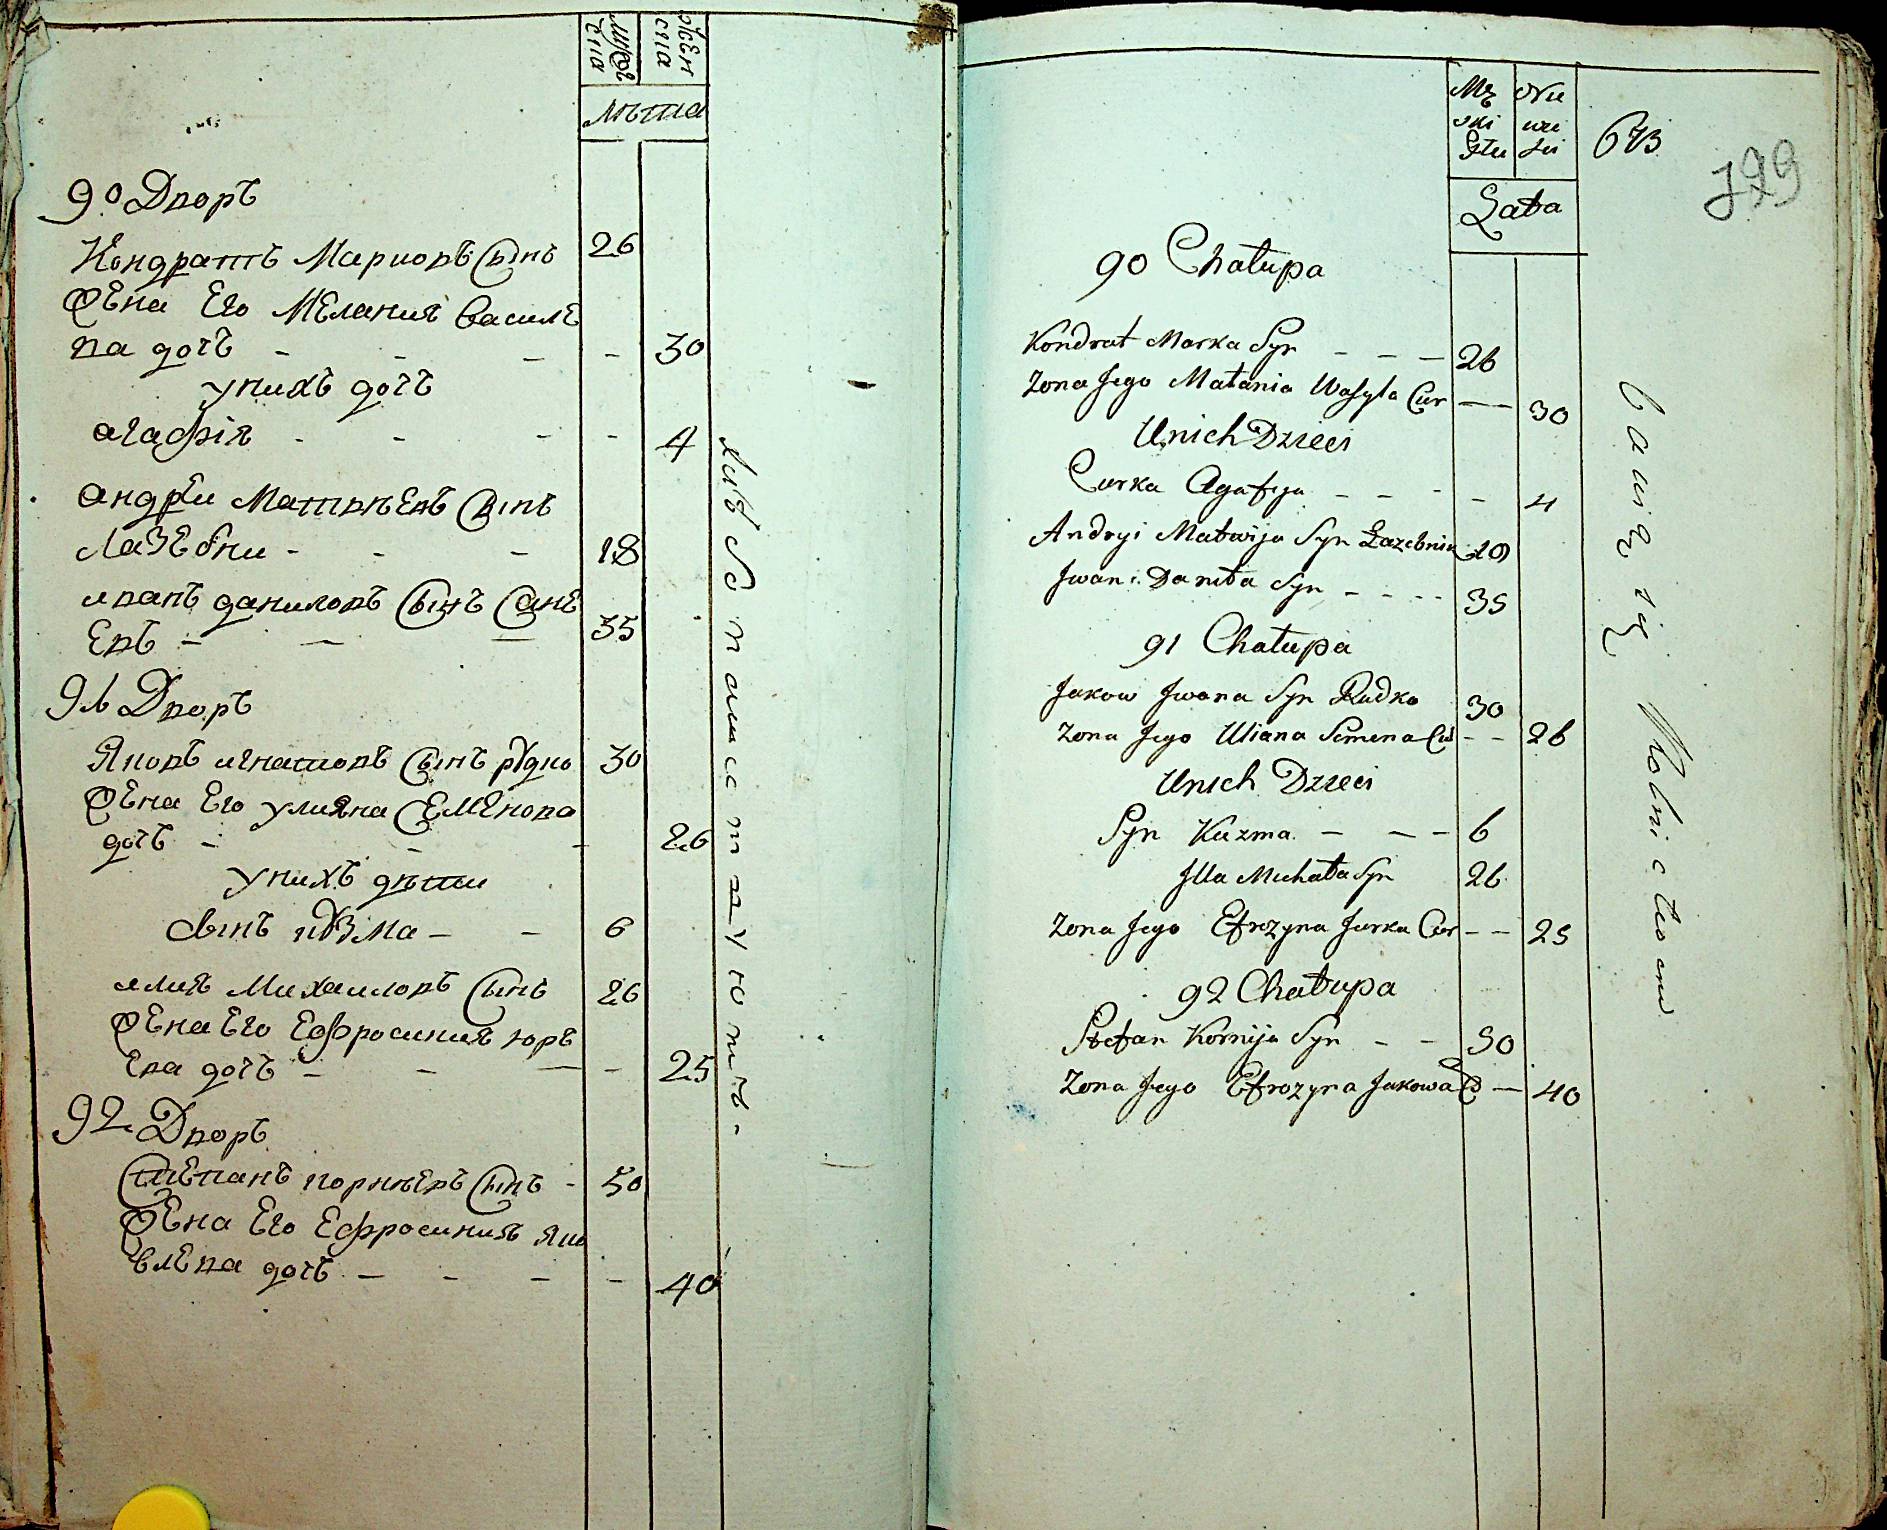 мужес
ка
женс
ка
лѣта
90 Дворъ
Кондратъ Марковъ сынъ 26
жена Его Мелания Василе
ва дочъ - - - - 30
у нихъ дочъ
агафія - - - - 4
андрѣи Матвѣевъ сынъ
лазебни - - - 18
иванъ даниловъ сынъ
Евъ - - - 35
91 Дворъ
Яковъ игнатовъ сынъ рудко 30
жена Его улияна Семенова
дочъ - - - 26
у нихъ дѣти
сынъ кузма - - 6
илия Михаиловъ сынъ 26
жена Его Ефросиния юрь
Ева дочъ - - - - 25
92 Дворъ
Степанъ корнѣевъ сынъ - 50
жена Его Ефросиния яко
влева дочъ - - - - 40
хлѣбопашествуютъ -
Mę
ski
Stu
Lata
673
799
90 Chałupa
Kondrat Marka Syn - - - 26
Zona Jego Małania Wasyla Cur - - 30
Unich Dzieci
Curka Agafija - - - - 4
Andryi Matwija Syn Łazebnik 18
Jwan Daniła Syn - - - - 35
91 Chałupa
Jakow Jwana Syn Rudko 30
Zona Jego Uliana Semena Cu - - 26
Unich Dzieci
Syn Kuzma - - - 6
Jlla Michała Syn 26
Zona Jego Efrozyna Jurka Cur - - 25
92 Chałupa
Stefan Kornija Syn - - 50
Zona Jego Efrozyna Jakowa C - 40
bawią się Rolnictwem